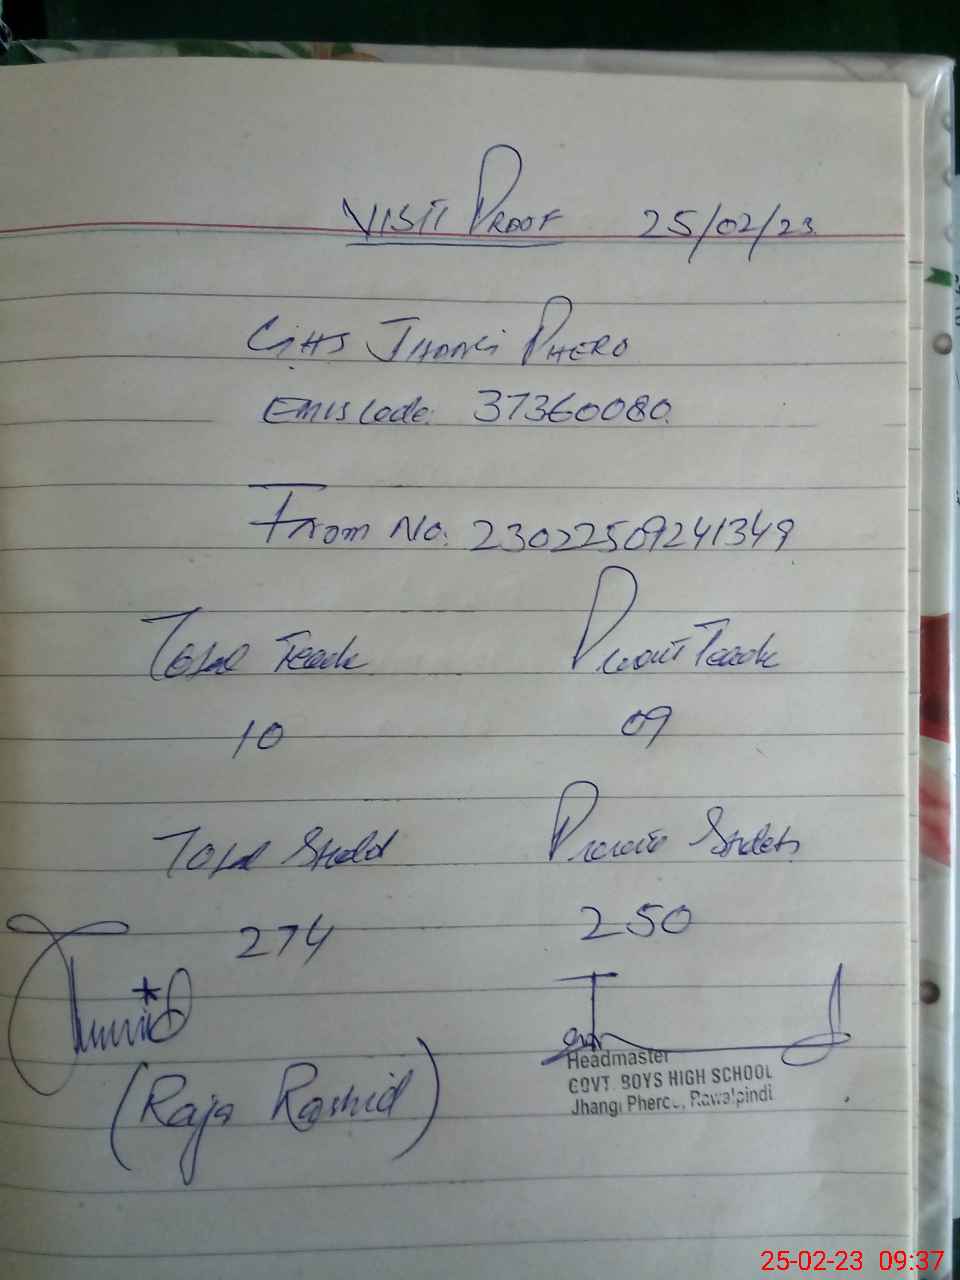 VISIT PROOF 25/02/23
GHS JHANGI PHERO
EMIS Code: 37360080
From No: 23022509241349
Total Teach Present Teach
10 09
Total Studd Present Studets
274 250
(Raja Rashid)
Headmaster
GOVT. BOYS HIGH SCHOOL
Jhangi Phero, Rawalpindi
25-02-23 09:37